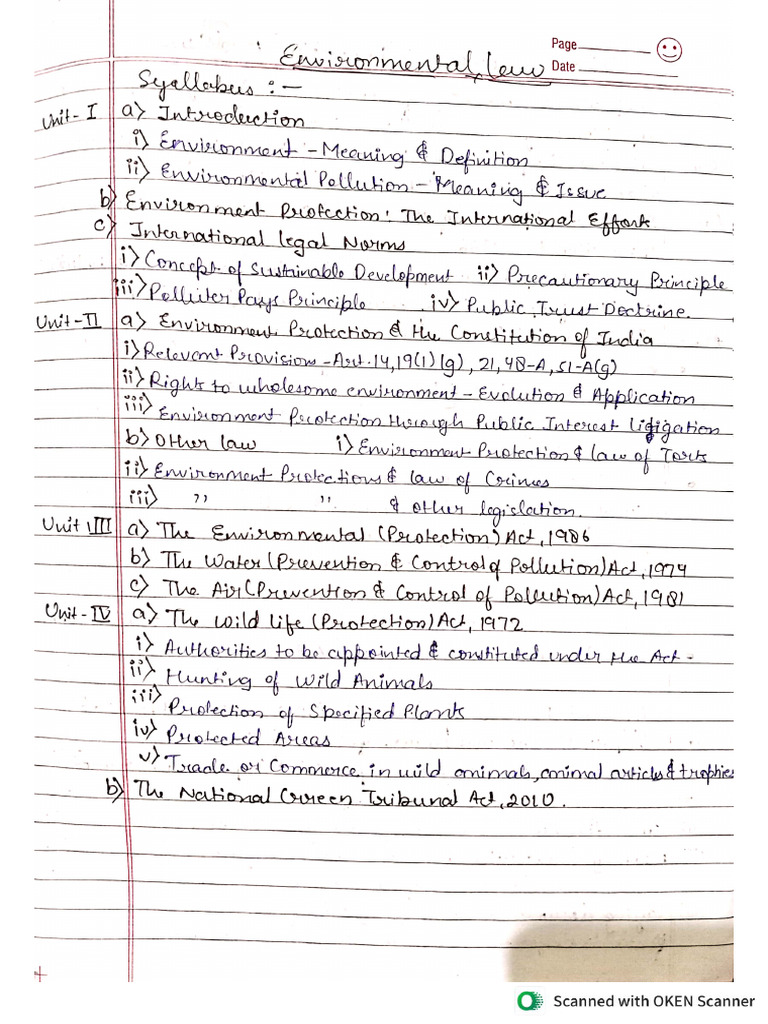 Page
Environmental Law
Date
Syallabus :-
Unit-I a) Introduction
i) Environment - Meaning & Definition
ii) Environmental Pollution - Meaning & Issue
b) Environment Protection: The International Effort
c) International legal Norms
i) Concept of Sustainable Development ii) Precautionary Principle
iii) Polluter Pays Principle iv) Public Trust Doctrine.
Unit-II a) Environment Protection & the Constitution of India
i) Relevant Provisions - Art. 14, 19(1)(g), 21, 48-A, 51-A(g)
ii) Right to wholesome environment - Evolution & Application
iii) Environment Protection through Public Interest Litigation
b) Other law i) Environment Protection & law of Torts
ii) Environment Protections & law of Crimes
iii) " " & other legislation.
Unit III a) The Environmental (Protection) Act, 1986
b) The Water (Prevention & Control of Pollution) Act, 1974
c) The Air (Prevention & Control of Pollution) Act, 1981
Unit-IV a) The Wild life (Protection) Act, 1972
i) Authorities to be appointed & constituted under the Act -
ii) Hunting of Wild Animals
iii) Protection of Specified Plants
iv) Protected Areas
v) Trade or Commerce in wild animals, animal articles & trophies
b) The National Green Tribunal Act, 2010.
Scanned with OKEN Scanner